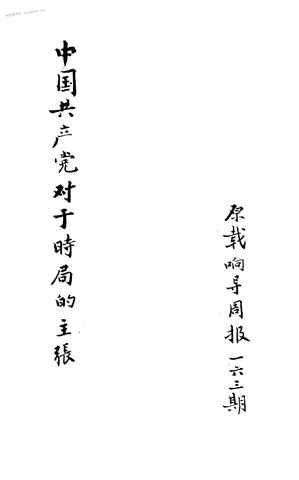 原载响导周报一六三期
中国共产党对于時局的主張